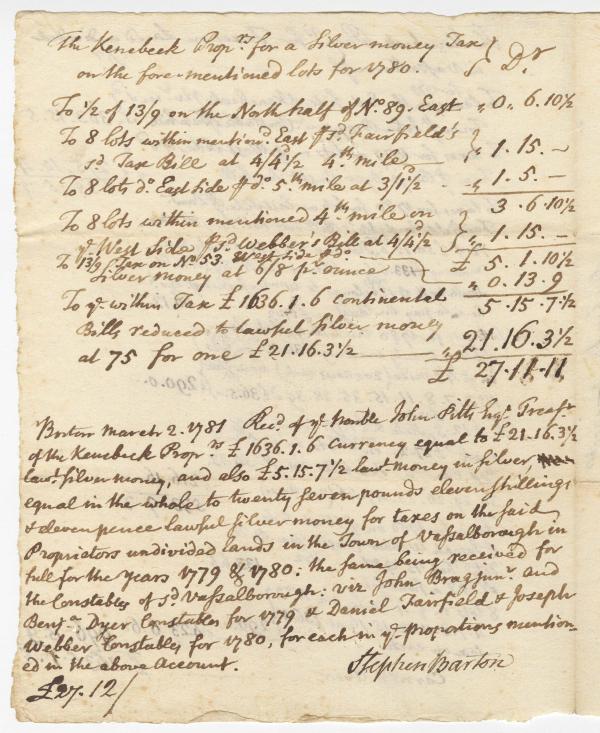 The Kenebeck Prop.rs for a Silver money Tax } Dr
on the fore-mentioned lots for 1780.
To 1/2 of 13/9 on the North half of No. 89. East " 0 " 6. 10 1/2
To 8 lots within mention.d East ℘ s.d Fairfield's
s.d Tax Bill at 4/4 1/2 4.th mile — } " 1. 15. –
To 8 lots d.o East side ℘ d.o 5.th mile at 3/1 1/2 . " 1. 5. –
3. 6. 10 1/2
To 8 lots within mentioned 4.th mile on
y.e West Side ℘ s.d Webber's Bill at 4/4 1/2 } " 1. 15. –
To 13/9 Tax on No. 53. West side ℘ d.o £ 5. 1. 10 1/2
Silver money at 6/8 p.r ounce — " 0. 13. 9
To y.e within Tax £ 1636. 1. 6 continental 5. 15. 7 1/2
Bills reduced to lawful silver money
at 75 for one £ 21. 16. 3 1/2 — " 21. 16. 3 1/2
£ 27. 11. 11
Boston March 2. 1781 Rec.d of y.e Honble John Pitts Esq.r Treas.r
of the Kenebeck Prop.rs £ 1636. 1. 6 Currency equal to £ 21. 16. 3 1/2
law.l silver money, and also £ 5. 15. 7 1/2 law.l money in silver,
equal in the whole to twenty seven pounds eleven shillings
& eleven pence lawful silver money for taxes on the said
Proprietors undivided lands in the Town of Vassalborough in
full for the years 1779 & 1780: the same being received for
the Constables of s.d Vassalborough: viz John Bragg jun.r and
Benj.a Dyer Constables for 1779 & Daniel Fairfield & Joseph
Webber Constables for 1780, for each in y.e Proportions mention-
ed in the above Account.
Stephen Barton
£ 27. 12/